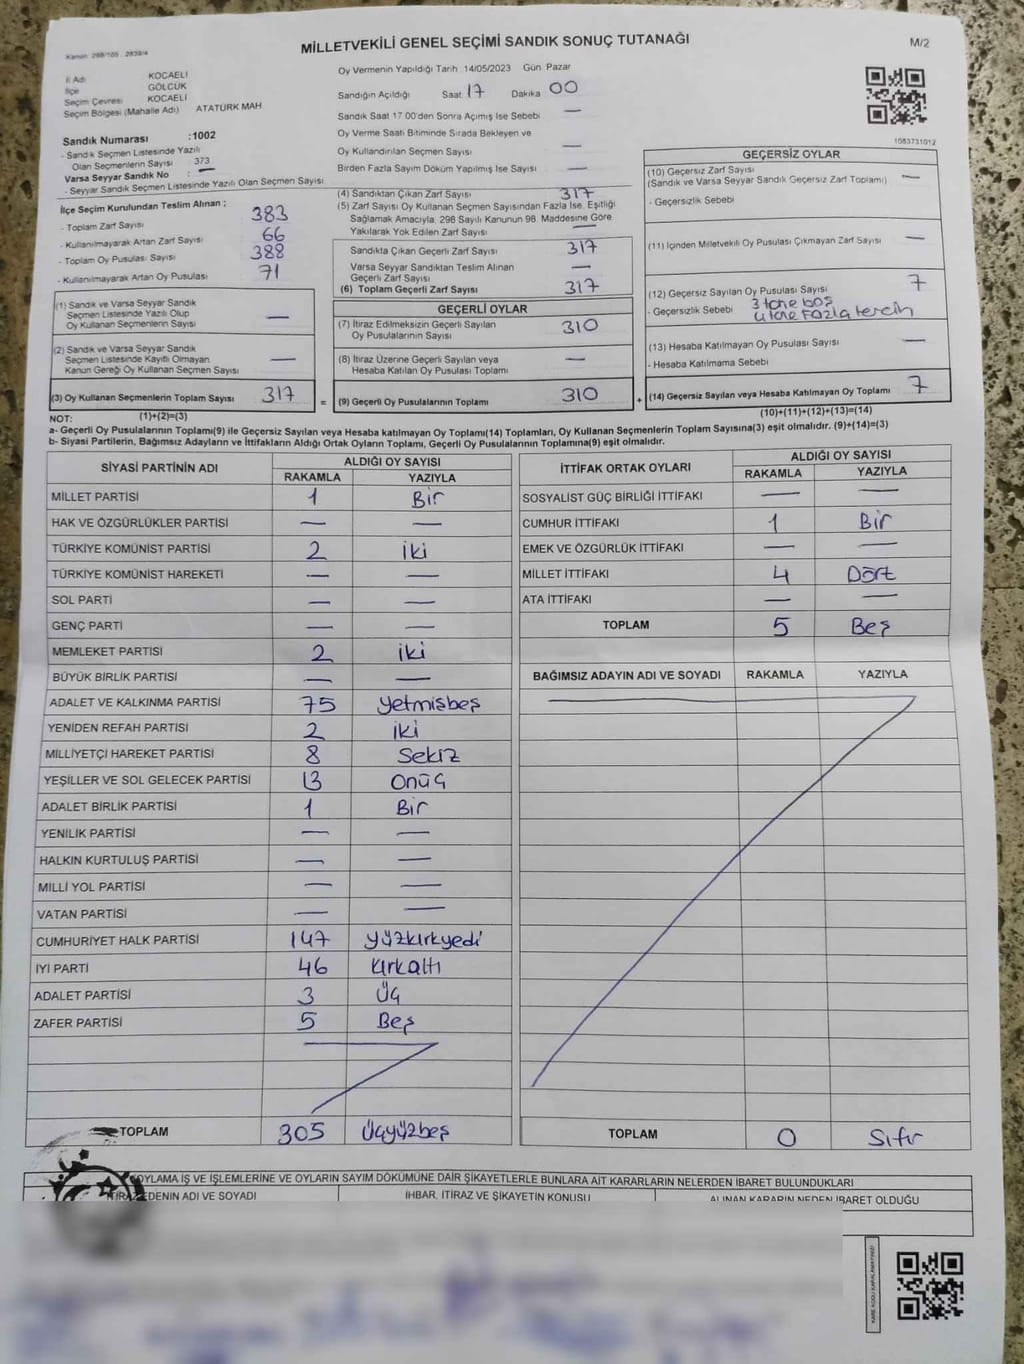 Kanun: 298/105 , 2839/4
MİLLETVEKİLİ GENEL SEÇİMİ SANDIK SONUÇ TUTANAĞI
M/2
İl Adı KOCAELİ
İlçe GÖLCÜK
Seçim Çevresi KOCAELİ
Seçim Bölgesi (Mahalle Adı) ATATÜRK MAH
Oy Vermenin Yapıldığı Tarih 14/05/2023 Gün Pazar
Sandığın Açıldığı Saat 17 Dakika 00
Sandık Saat 17.00'den Sonra Açımış İse Sebebi —
Oy Verme Saati Bitiminde Sırada Bekleyen ve
Oy Kullandırılan Seçmen Sayısı —
Birden Fazla Sayım Döküm Yapılmış İse Sayısı —
1083731012
Sandık Numarası :1002
- Sandık Seçmen Listesinde Yazılı
Olan Seçmenlerin Sayısı 373
Varsa Seyyar Sandık No : —
- Seyyar Sandık Seçmen Listesinde Yazılı Olan Seçmen Sayısı
İlçe Seçim Kurulundan Teslim Alınan ;
- Toplam Zarf Sayısı 383
- Kullanılmayarak Artan Zarf Sayısı 66
- Toplam Oy Pusulası Sayısı 388
- Kullanılmayarak Artan Oy Pusulası 71
(1) Sandık ve Varsa Seyyar Sandık
Seçmen Listesinde Yazılı Olup
Oy Kullanan Seçmenlerin Sayısı —
(2) Sandık ve Varsa Seyyar Sandık
Seçmen Listesinde Kayıtlı Olmayan
Kanun Gereği Oy Kullanan Seçmen Sayısı —
(3) Oy Kullanan Seçmenlerin Toplam Sayısı 317 =
(1)+(2)=(3)
(4) Sandıktan Çıkan Zarf Sayısı 317
(5) Zarf Sayısı Oy Kullanan Seçmen Sayısından Fazla İse, Eşitliği
Sağlamak Amacıyla, 298 Sayılı Kanunun 98. Maddesine Göre
Yakılarak Yok Edilen Zarf Sayısı —
Sandıkta Çıkan Geçerli Zarf Sayısı 317
Varsa Seyyar Sandıktan Teslim Alınan
Geçerli Zarf Sayısı —
(6) Toplam Geçerli Zarf Sayısı 317
GEÇERLİ OYLAR
(7) İtiraz Edilmeksizin Geçerli Sayılan
Oy Pusulalarının Sayısı 310
(8) İtiraz Üzerine Geçerli Sayılan veya
Hesaba Katılan Oy Pusulası Toplamı —
(9) Geçerli Oy Pusulalarının Toplamı 310 +
GEÇERSİZ OYLAR
(10) Geçersiz Zarf Sayısı
(Sandık ve Varsa Seyyar Sandık Geçersiz Zarf Toplamı) —
- Geçersizlik Sebebi
(11) İçinden Milletvekili Oy Pusulası Çıkmayan Zarf Sayısı —
(12) Geçersiz Sayılan Oy Pusulası Sayısı 7
- Geçersizlik Sebebi 3 tane boş
4 tane fazla tercih
(13) Hesaba Katılmayan Oy Pusulası Sayısı —
- Hesaba Katılmama Sebebi
(14) Geçersiz Sayılan veya Hesaba Katılmayan Oy Toplamı 7
(10)+(11)+(12)+(13)=(14)
NOT:
a- Geçerli Oy Pusulalarının Toplamı(9) ile Geçersiz Sayılan veya Hesaba katılmayan Oy Toplamı(14) Toplamları, Oy Kullanan Seçmenlerin Toplam Sayısına(3) eşit olmalıdır. (9)+(14)=(3)
b- Siyasi Partilerin, Bağımsız Adayların ve İttifakların Aldığı Ortak Oyların Toplamı, Geçerli Oy Pusulalarının Toplamına(9) eşit olmalıdır.
SİYASİ PARTİNİN ADI ALDIĞI OY SAYISI
RAKAMLA YAZIYLA
MİLLET PARTİSİ 1 Bir
HAK VE ÖZGÜRLÜKLER PARTİSİ — —
TÜRKİYE KOMÜNİST PARTİSİ 2 iki
TÜRKİYE KOMÜNİST HAREKETİ — —
SOL PARTİ — —
GENÇ PARTİ — —
MEMLEKET PARTİSİ 2 iki
BÜYÜK BİRLİK PARTİSİ — —
ADALET VE KALKINMA PARTİSİ 75 Yetmişbeş
YENİDEN REFAH PARTİSİ 2 iki
MİLLİYETÇİ HAREKET PARTİSİ 8 Sekiz
YEŞİLLER VE SOL GELECEK PARTİSİ 13 Onüç
ADALET BİRLİK PARTİSİ 1 Bir
YENİLİK PARTİSİ — —
HALKIN KURTULUŞ PARTİSİ — —
MİLLİ YOL PARTİSİ — —
VATAN PARTİSİ — —
CUMHURİYET HALK PARTİSİ 147 Yüzkırkyedi
İYİ PARTİ 46 Kırkaltı
ADALET PARTİSİ 3 Üç
ZAFER PARTİSİ 5 Beş
TOPLAM 305 Üçyüzbeş
İTTİFAK ORTAK OYLARI ALDIĞI OY SAYISI
RAKAMLA YAZIYLA
SOSYALİST GÜÇ BİRLİĞİ İTTİFAKI — —
CUMHUR İTTİFAKI 1 Bir
EMEK VE ÖZGÜRLÜK İTTİFAKI — —
MİLLET İTTİFAKI 4 Dört
ATA İTTİFAKI — —
TOPLAM 5 Beş
BAĞIMSIZ ADAYIN ADI VE SOYADI RAKAMLA YAZIYLA
TOPLAM 0 Sıfır
OYLAMA İŞ VE İŞLEMLERİNE VE OYLARIN SAYIM DÖKÜMÜNE DAİR ŞİKAYETLERLE BUNLARA AİT KARARLARIN NELERDEN İBARET BULUNDUKLARI
İTİRAZ EDENİN ADI VE SOYADI İHBAR, İTİRAZ VE ŞİKAYETİN KONUSU ALINAN KARARIN NEDEN İBARET OLDUĞU
KARE KODU KARALAMAYINIZ!